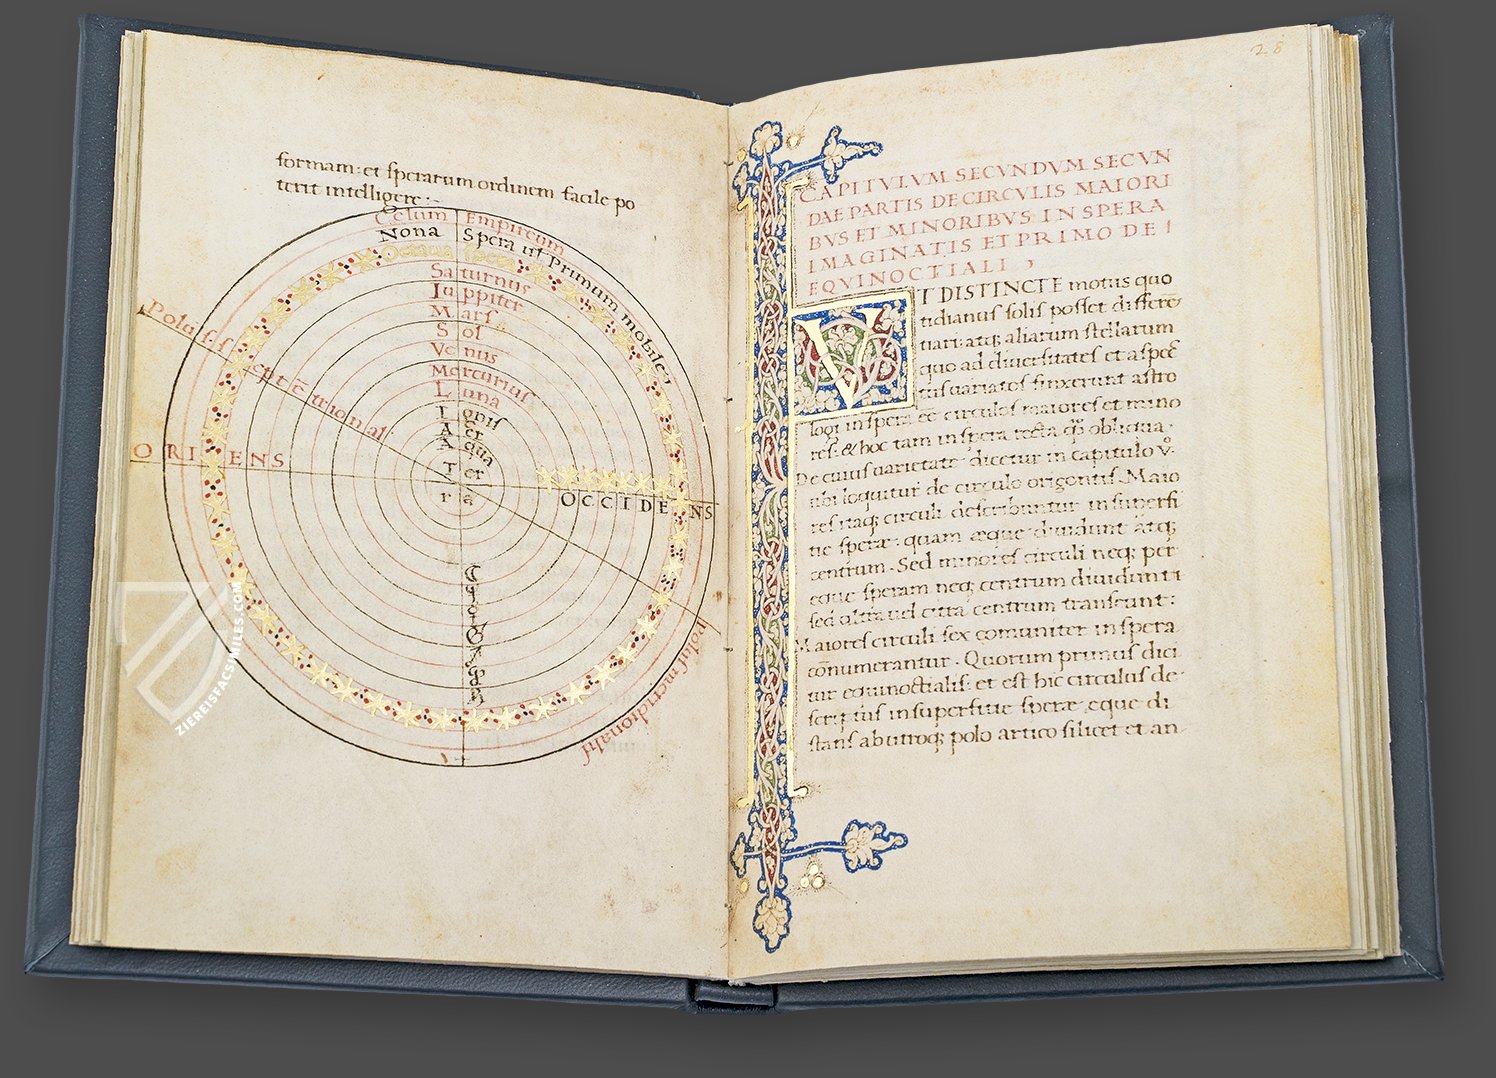 formam: et sperarum ordinem facile po
terit intelligere:
Celum Empireum
Nona Spera uł Primum mobile
Octaua spera
Saturnus
Iuppiter
Mars
Sol
Venus
Mercurius
Luna
Ignis
Aer
Aqua
Ter
ra
Polus septētrional
ORIENS
OCCIDENS
Polus meridionalis
ZIEREISFACSIMILES.COM
28
CAPITVLVM SECVNDVM SECVN
DAE PARTIS DE CIRCVLIS MAIORI
BVS ET MINORIBVS IN SPERA
IMAGINATIS ET PRIMO DE
EQVINOCTIALI
VT DISTINCTE motus quo
tidianus solis posset differe
tiari: atq; aliarum stellarum
quo ad diuersitates et aspec
tus uariatos finxerunt astro
logi in spera eē circulos maiores et mino
res: & hoc tam in spera recta q̄ obliqua.
De cuius uarietate dicetur in capitulo v.
ubi loquitur de circulo origontis. Maio
res itaq; circuli describuntur in superfi
tie sperae: quam aeque diuidunt atq;
centrum. Sed minores circuli neq; per
eque speram neq; centrum diuidunt
sed ultra uel citra centrum transeunt:
Maiores circuli sex comuniter in spera
cōnumerantur. Quorum primus dici
tur equinoctialis: et est hic circulus de
scriptus in superfitie sperae, eque di
stans ab utroq; polo artico silicet et an